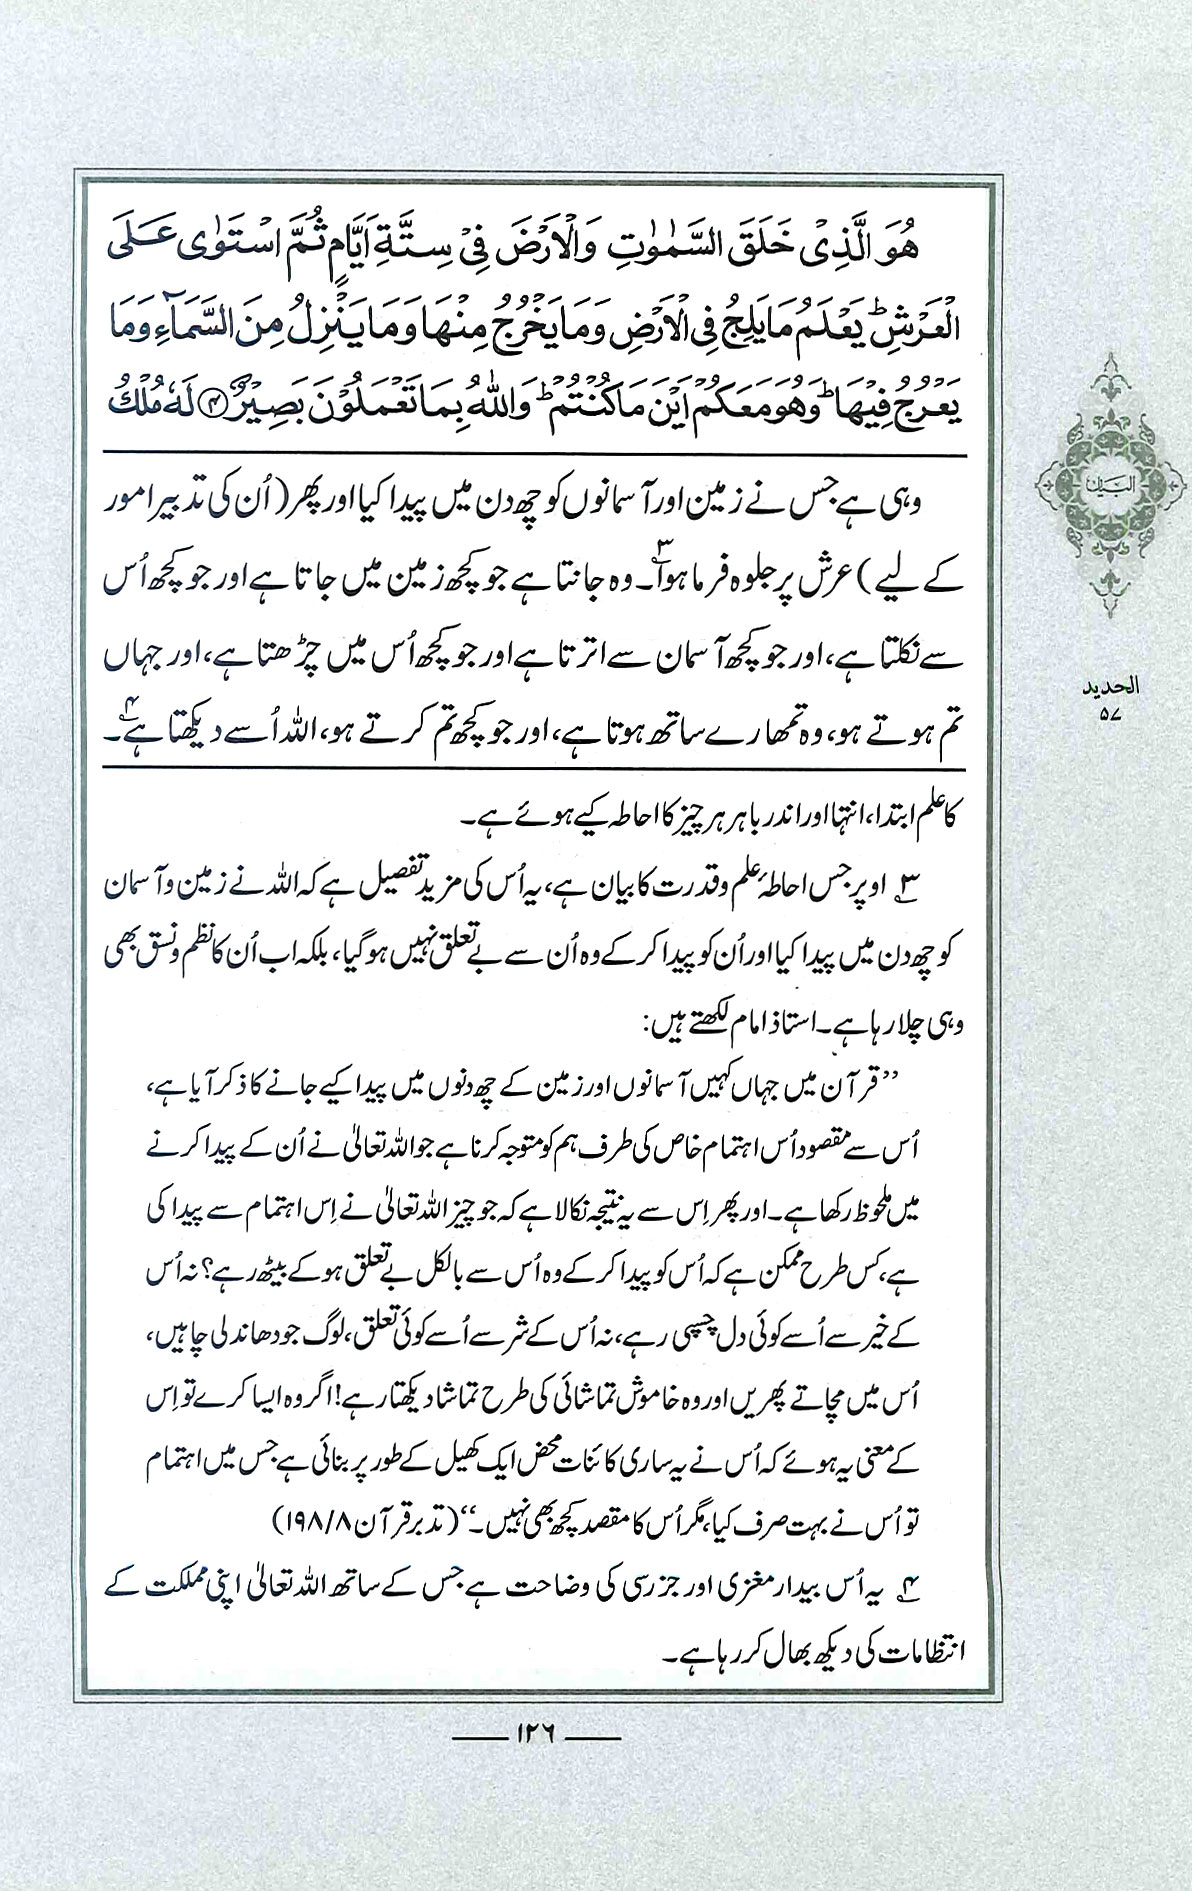 هُوَ الَّذِىْ خَلَقَ السَّمٰوٰتِ وَالْاَرْضَ فِىْ سِتَّةِ اَيَّامٍ ثُمَّ اسْتَوٰى عَلَى
الْعَرْشِ ؕ يَعْلَمُ مَا يَلِجُ فِى الْاَرْضِ وَمَا يَخْرُجُ مِنْهَا وَمَا يَنْزِلُ مِنَ السَّمَآءِ وَمَا
يَعْرُجُ فِيْهَا ؕ وَهُوَ مَعَكُمْ اَيْنَ مَا كُنْتُمْ ؕ وَاللّٰهُ بِمَا تَعْمَلُوْنَ بَصِيْرٌ ﴿۴﴾ لَهٗ مُلْكُ
وہی ہے جس نے زمین اور آسمانوں کو چھ دن میں پیدا کیا اور پھر (اُن کی تدبیر امور
کے لیے) عرش پر جلوہ فرما ہوا۳۔ وہ جانتا ہے جو کچھ زمین میں جاتا ہے اور جو کچھ اُس
سے نکلتا ہے، اور جو کچھ آسمان سے اترتا ہے اور جو کچھ اُس میں چڑھتا ہے، اور جہاں
تم ہوتے ہو، وہ تمھارے ساتھ ہوتا ہے، اور جو کچھ تم کرتے ہو، اللہ اُسے دیکھتا ہے۴۔
کا علم ابتدا، انتہا اور اندر باہر ہر چیز کا احاطہ کیے ہوئے ہے۔
۳ اوپر جس احاطۂ علم و قدرت کا بیان ہے، یہ اُس کی مزید تفصیل ہے کہ اللہ نے زمین و آسمان
کو چھ دن میں پیدا کیا اور اُن کو پیدا کرکے وہ اُن سے بے تعلق نہیں ہو گیا، بلکہ اب اُن کا نظم و نسق بھی
وہی چلا رہا ہے۔ استاذ امام لکھتے ہیں:
”قرآن میں جہاں کہیں آسمانوں اور زمین کے چھ دنوں میں پیدا کیے جانے کا ذکر آیا ہے،
اُس سے مقصود اُس اہتمام خاص کی طرف ہم کو متوجہ کرنا ہے جو اللہ تعالیٰ نے اُن کے پیدا کرنے
میں ملحوظ رکھا ہے۔ اور پھر اِس سے یہ نتیجہ نکالا ہے کہ جو چیز اللہ تعالیٰ نے اِس اہتمام سے پیدا کی
ہے، کس طرح ممکن ہے کہ اُس کو پیدا کرکے وہ اُس سے بالکل بے تعلق ہو کے بیٹھ رہے؟ نہ اُس
کے خیر سے اُسے کوئی دل چسپی رہے، نہ اُس کے شر سے اُسے کوئی تعلق، لوگ جو دھاندلی چاہیں،
اُس میں مچاتے پھریں اور وہ خاموش تماشائی کی طرح تماشا دیکھتا رہے! اگر وہ ایسا کرے تو اِس
کے معنی یہ ہوئے کہ اُس نے یہ ساری کائنات محض ایک کھیل کے طور پر بنائی ہے جس میں اہتمام
تو اُس نے بہت صرف کیا، مگر اُس کا مقصد کچھ بھی نہیں۔“ (تدبر قرآن ۸/ ۱۹۸)
۴ یہ اُس بیدار مغزی اور جزرسی کی وضاحت ہے جس کے ساتھ اللہ تعالیٰ اپنی مملکت کے
انتظامات کی دیکھ بھال کر رہا ہے۔
البیان
الحدید
۵۷
۱۲۶